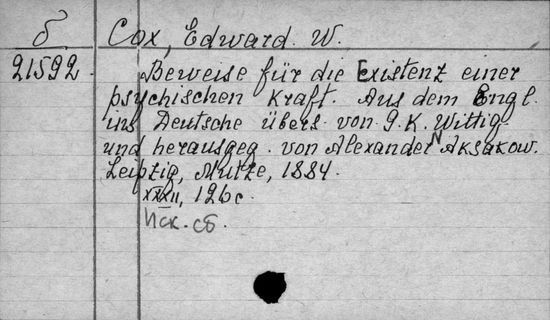 б Cox, Edward W.
21592. Beweise für die Existenz einer
psychischen Kraft. Aus dem Engl.
ins Deutsche übers. von G. K. Wittig
und herausgeg. von Alexander N Aksakow.
Leipzig, Mutze, 1884.
XXXII, 126 c.
Иск. сб.